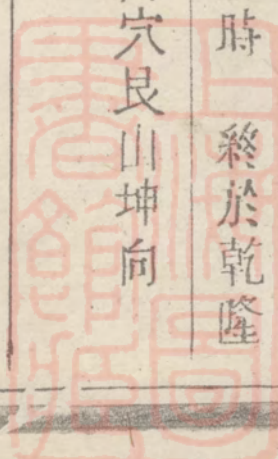 時　終於乾隆
穴艮山坤向